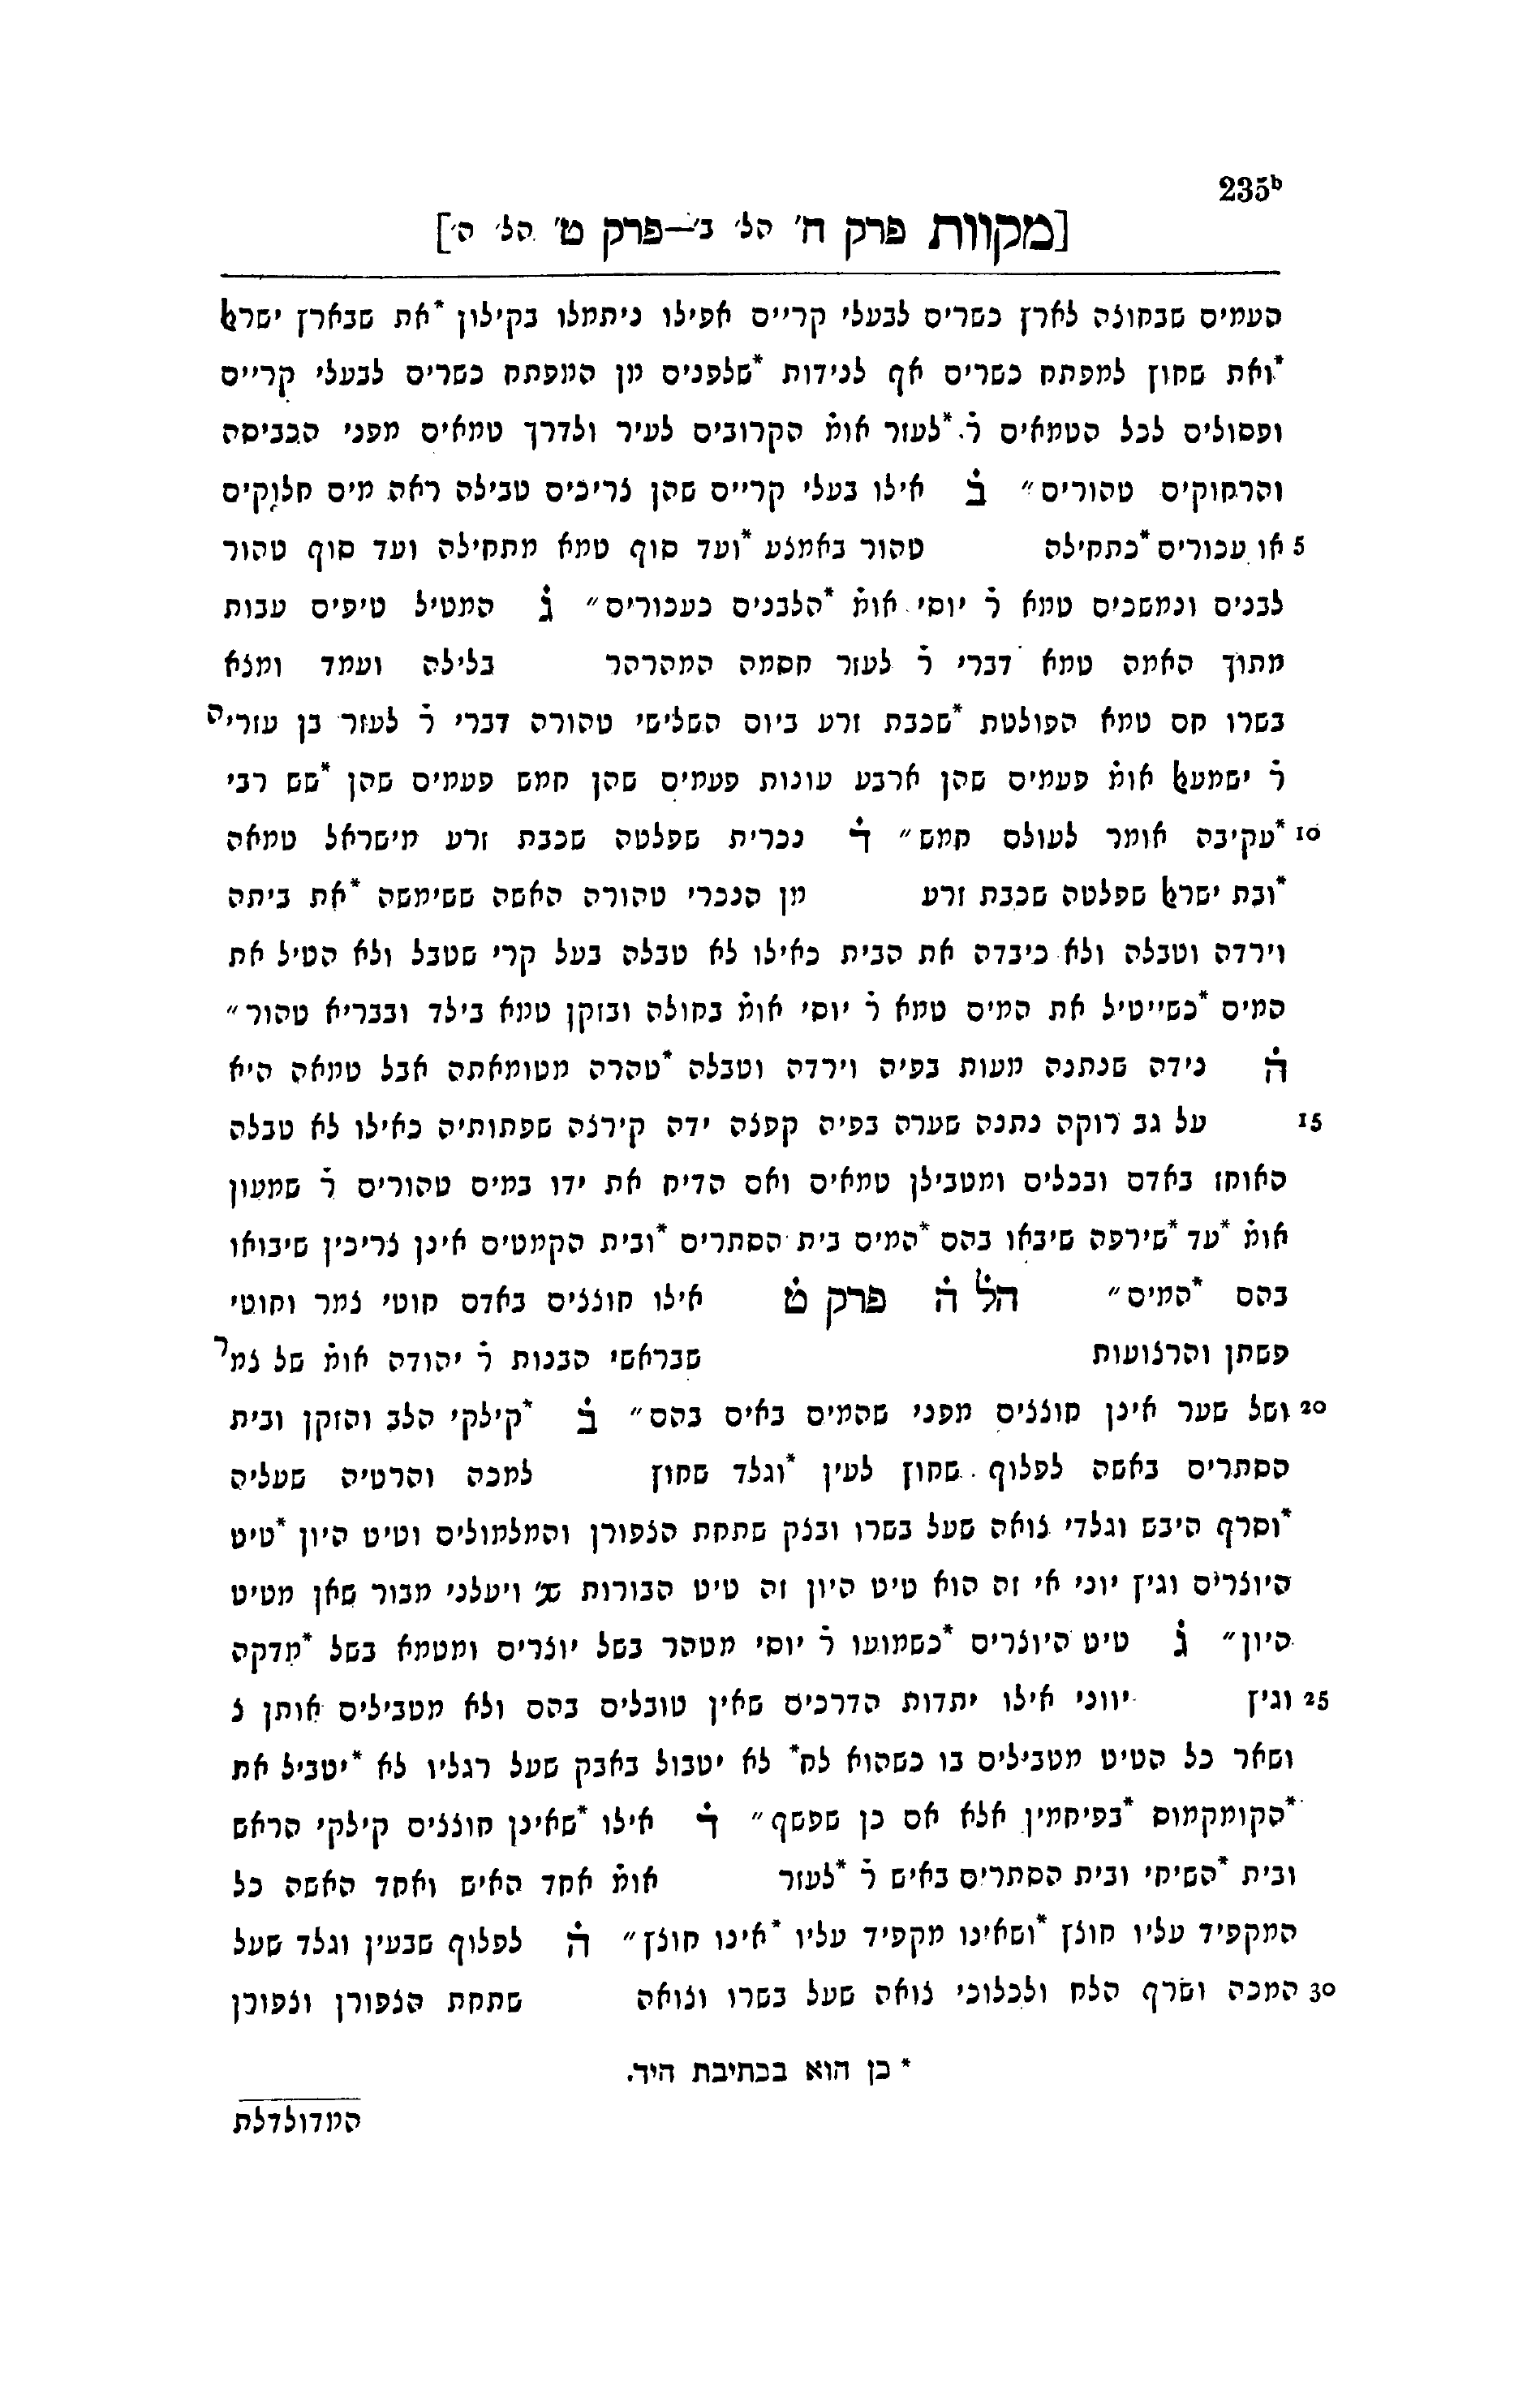 235b
[מקוות פרק ח' הל' ב'—פרק ט' הל' ה']
העמים שבחוצה לארץ כשרים לבעלי קריים אפילו ניתמלו בקילון *את שבארץ ישראל
*ואת שחוץ למפתח כשרים אף לנידות *שלפנים מן המפתח כשרים לבעלי קריים
ופסולים לכל הטמאים ר' *לעזר אומ' הקרובים לעיר ולדרך טמאים מפני הכביסה
והרחוקים טהורים״ ב אילו בעלי קריים שהן צריכים טבילה ראה מים חלוקים
5 או עכורים *בתחילה טהור באמצע *ועד סוף טמא מתחילה ועד סוף טהור
לבנים ונמשכים טמא ר' יוסי אומ' *הלבנים כעכורים״ ג המטיל טיפים עבות
מתוך האמה טמא דברי ר' לעזר חסמה המהרהר בלילה ועמד ומצא
בשרו חם טמא הפולטת *שכבת זרע ביום השלישי טהורה דברי ר' לעזר בן עזריה
ר' ישמעאל אומ' פעמים שהן ארבע עונות פעמים שהן חמש פעמים שהן *שש רבי
10 *עקיבה אומר לעולם חמש״ ד נכרית שפלטה שכבת זרע מישראל טמאה
*ובת ישראל שפלטה שכבת זרע מן הנכרי טהורה האשה ששימשה *את ביתה
וירדה וטבלה ולא כיבדה את הבית כאילו לא טבלה בעל קרי שטבל ולא הטיל את
המים *כשייטיל את המים טמא ר' יוסי אומ' בחולה ובזקן טמא בילד ובבריא טהור״
ה נידה שנתנה מעות בפיה וירדה וטבלה *טהרה מטומאתה אבל טמאה היא
15 על גב רוקה נתנה שערה בפיה קפצה ידה קירצה שפתותיה כאילו לא טבלה
האוחז באדם ובכלים ומטבילן טמאים ואם הדיח את ידו במים טהורים ר' שמעון
אומ' *עד *שירפה שיבאו בהם *המים בית הסתרים *ובית הקמטים אינן צריכין שיבואו
בהם *המים״ הל' ה פרק ט אילו חוצצים באדם חוטי צמר וחוטי
פשתן והרצועות שבראשי הבנות ר' יהודה אומ' של צמר
20 ושל שער אינן חוצצים מפני שהמים באים בהם״ ב *קילקי הלב והזקן ובית
הסתרים באשה לפלוף שחוץ לעין *וגלד שחוץ למכה והרטיה שעליה
*וסרף היבש וגלדי צואה שעל בשרו ובצק שתחת הצפורן והמלמולים וטיט היון *טיט
היוצרים וגיץ יוני אי זה הוא טיט היון זה טיט הבורות שנ' ויעלני מבור שאן מטיט
היון״ ג טיט היוצרים *כשמועו ר' יוסי מטהר בשל יוצרים ומטמא בשל *מדקה
25 וגיץ יווני אילו יתדות הדרכים שאין טובלים בהם ולא מטבילים אותן צ
ושאר כל הטיט מטבילים בו כשהוא לח* לא יטבול באבק שעל רגליו לא *יטביל את
*הקומקמוס *בפיחמין אלא אם כן שפשף״ ד אילו *שאינן חוצצים קילקי הראש
ובית *השיחי ובית הסתרים באיש ר' *לעזר אומ' אחד האיש ואחד האשה כל
המקפיד עליו חוצץ *ושאינו מקפיד עליו *אינו חוצץ״ ה לפלוף שבעין וגלד שעל
30 המכה ושרף הלח ולכלוכי צואה שעל בשרו וצואה שתחת הצפורן וצפורן
* כן הוא בכתיבת היד.
המדולדלת